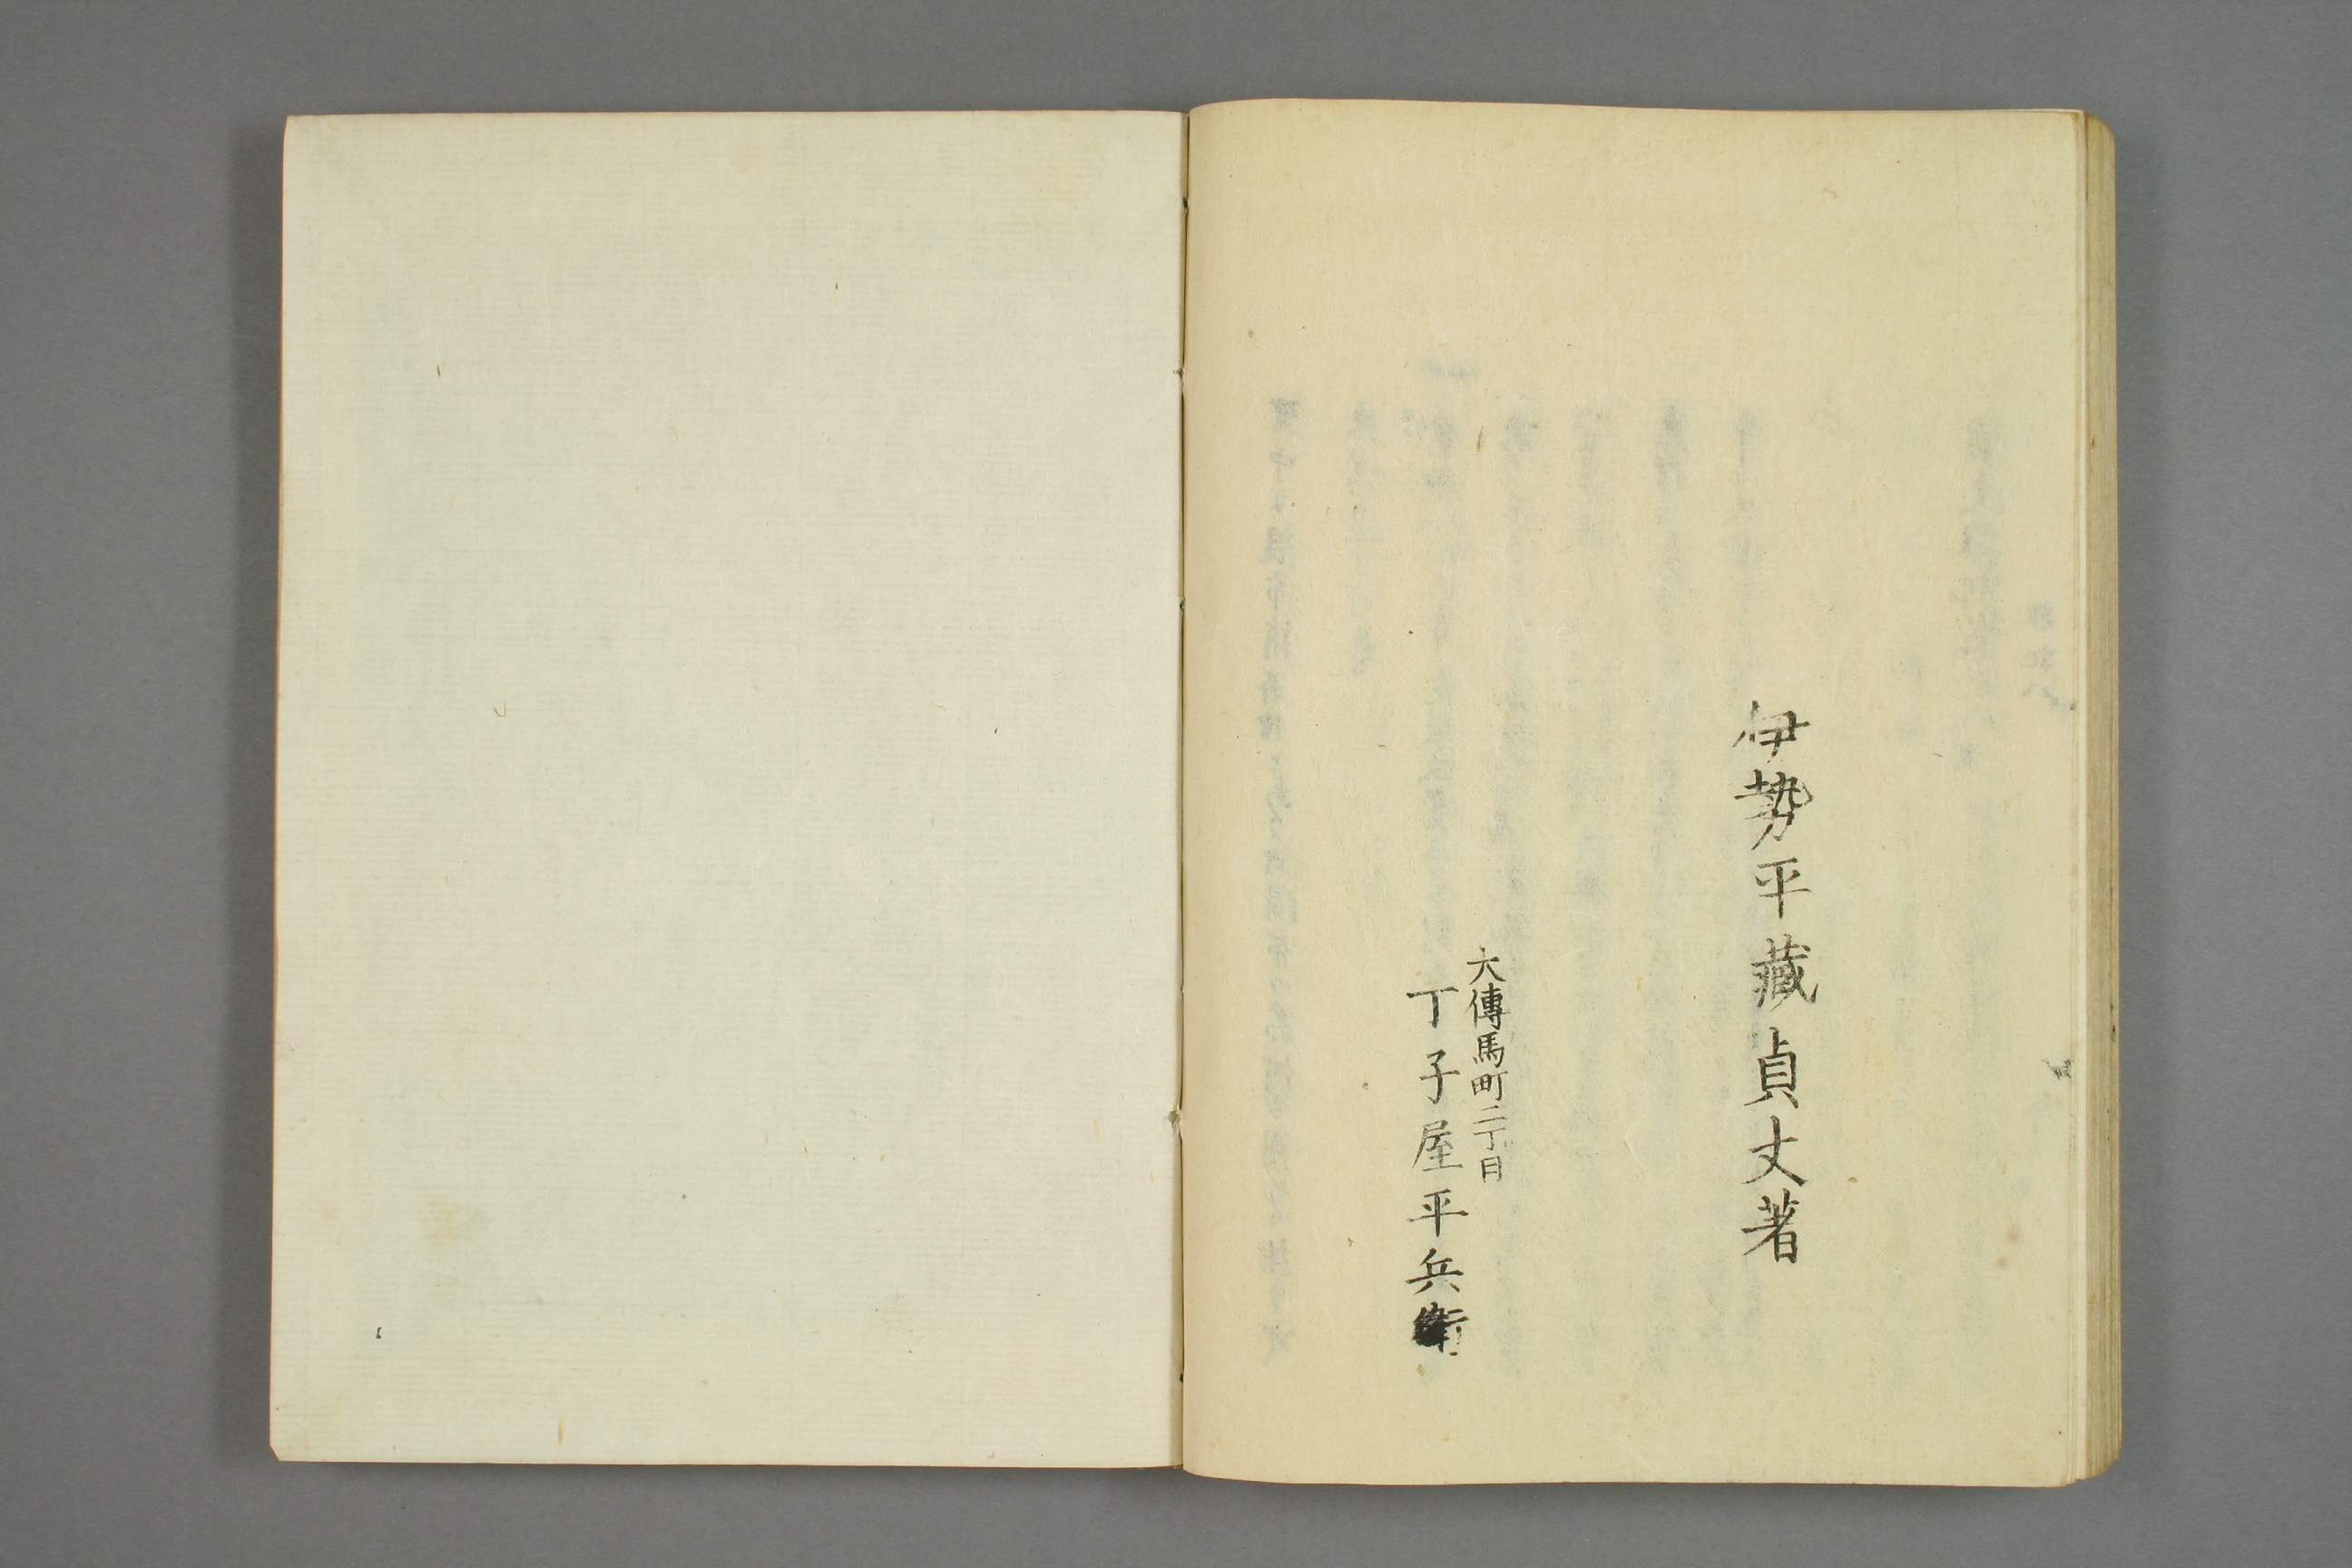 伊勢平藏貞丈著
大傳馬町二丁目
丁子屋平兵衛